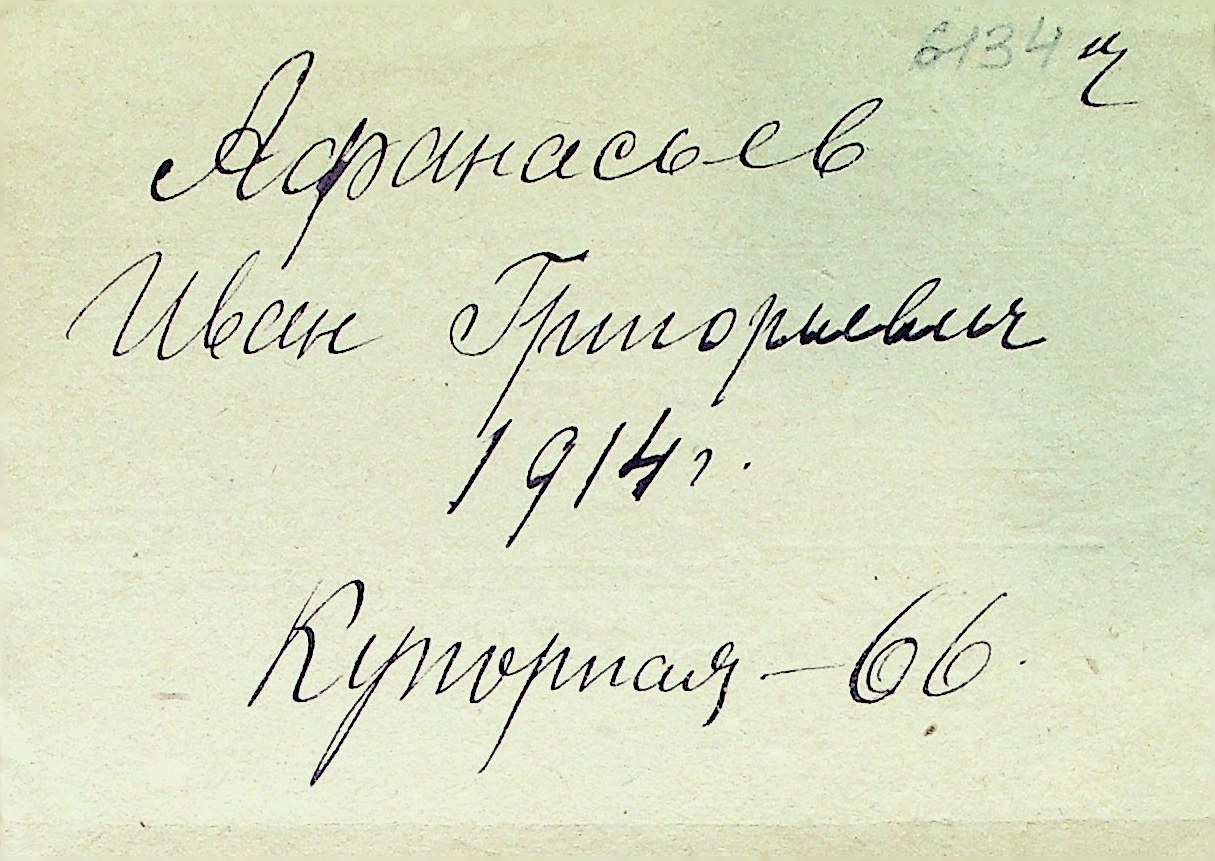 6134 ч
Афанасьев
Иван Григорьевич
1914 г.
Купорная – 66.